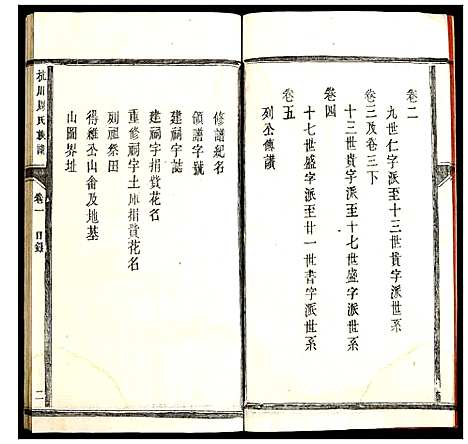 卷二
九世仁字派至十三世貴字派世系
卷三及卷三下
十三世貴字派至十七世盛字派世系
卷四
十七世盛字派至廿一世書字派世系
卷五
列公傳讚
修譜紀名
領譜字號
建祠字誌
建祠字捐貲花名
重修祠字土庫捐貲花名
列祖祭田
得雞公山畬及地基
山圖界址
杭川周氏族譜
卷一 目錄
二